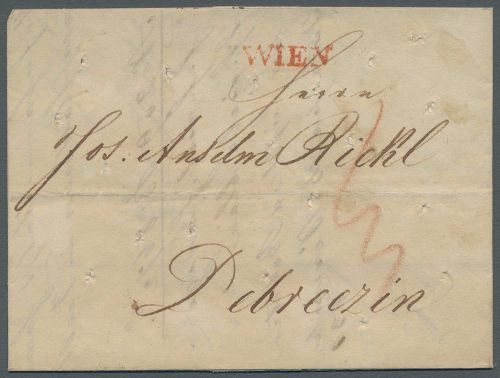 WIEN
Herrn
Jos: Anselm Rickl
Debreczin